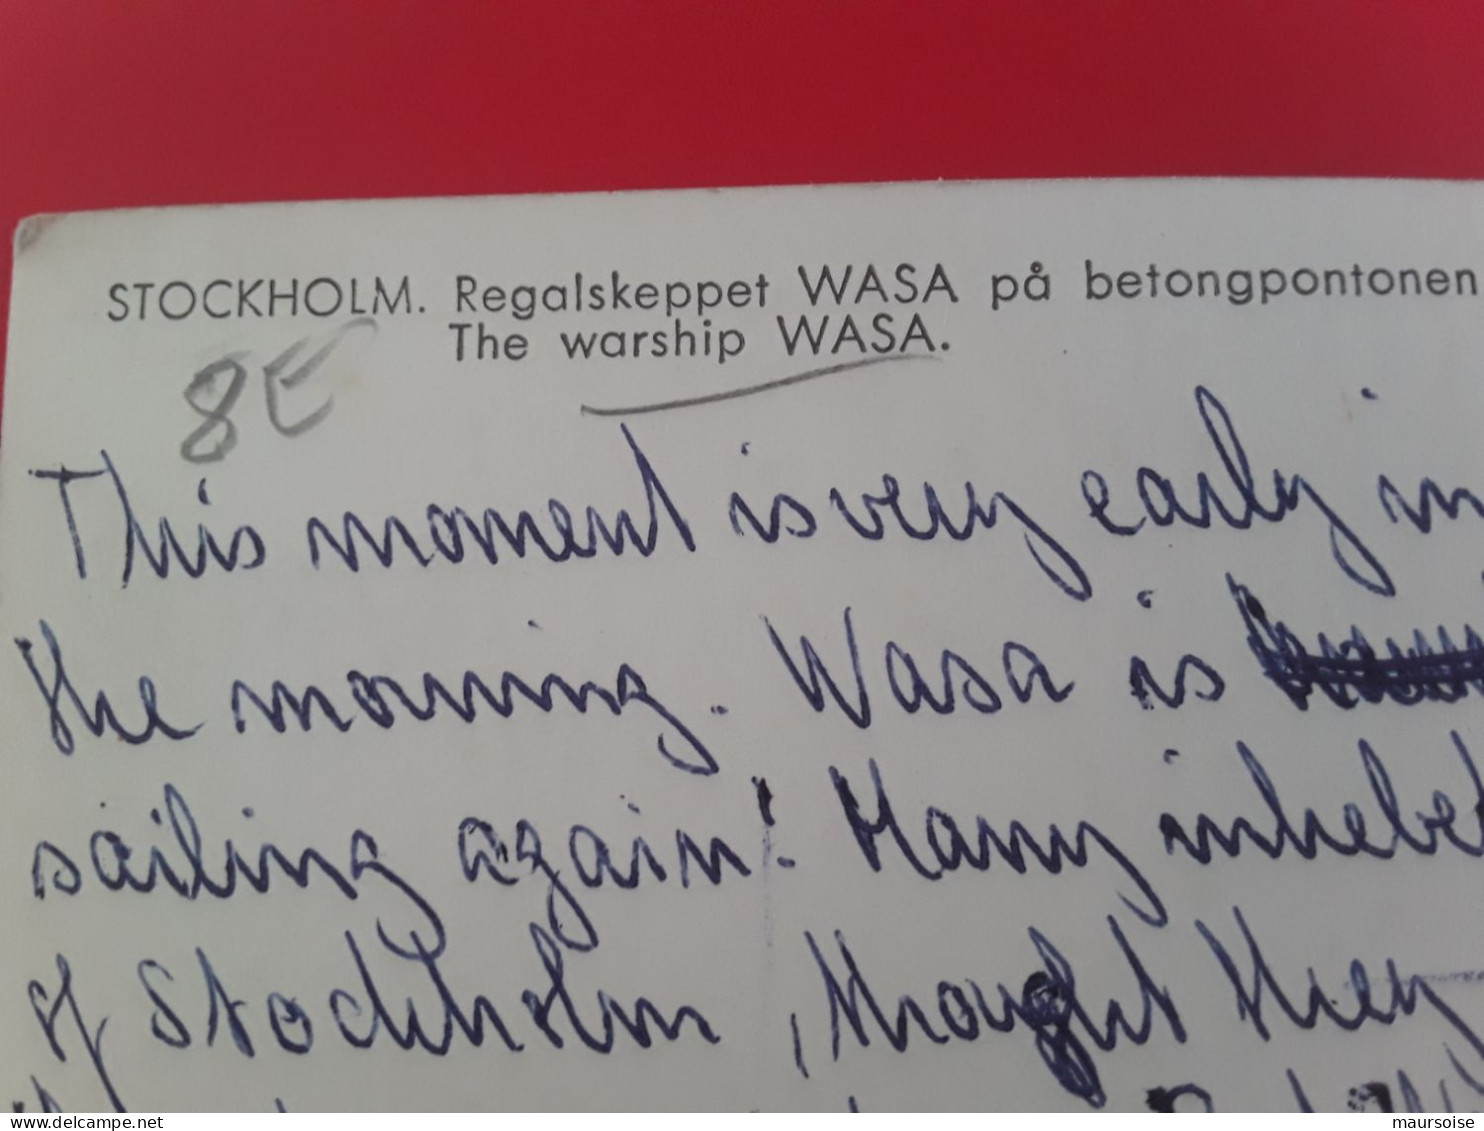 STOCKHOLM. Regalskeppet WASA på betongpontonen
The warship WASA.
8E
This moment is very early in
the morning. Wasa is
sailing again! Many inhebet
of Stockholm, thought they
delcampe.net
maursoise